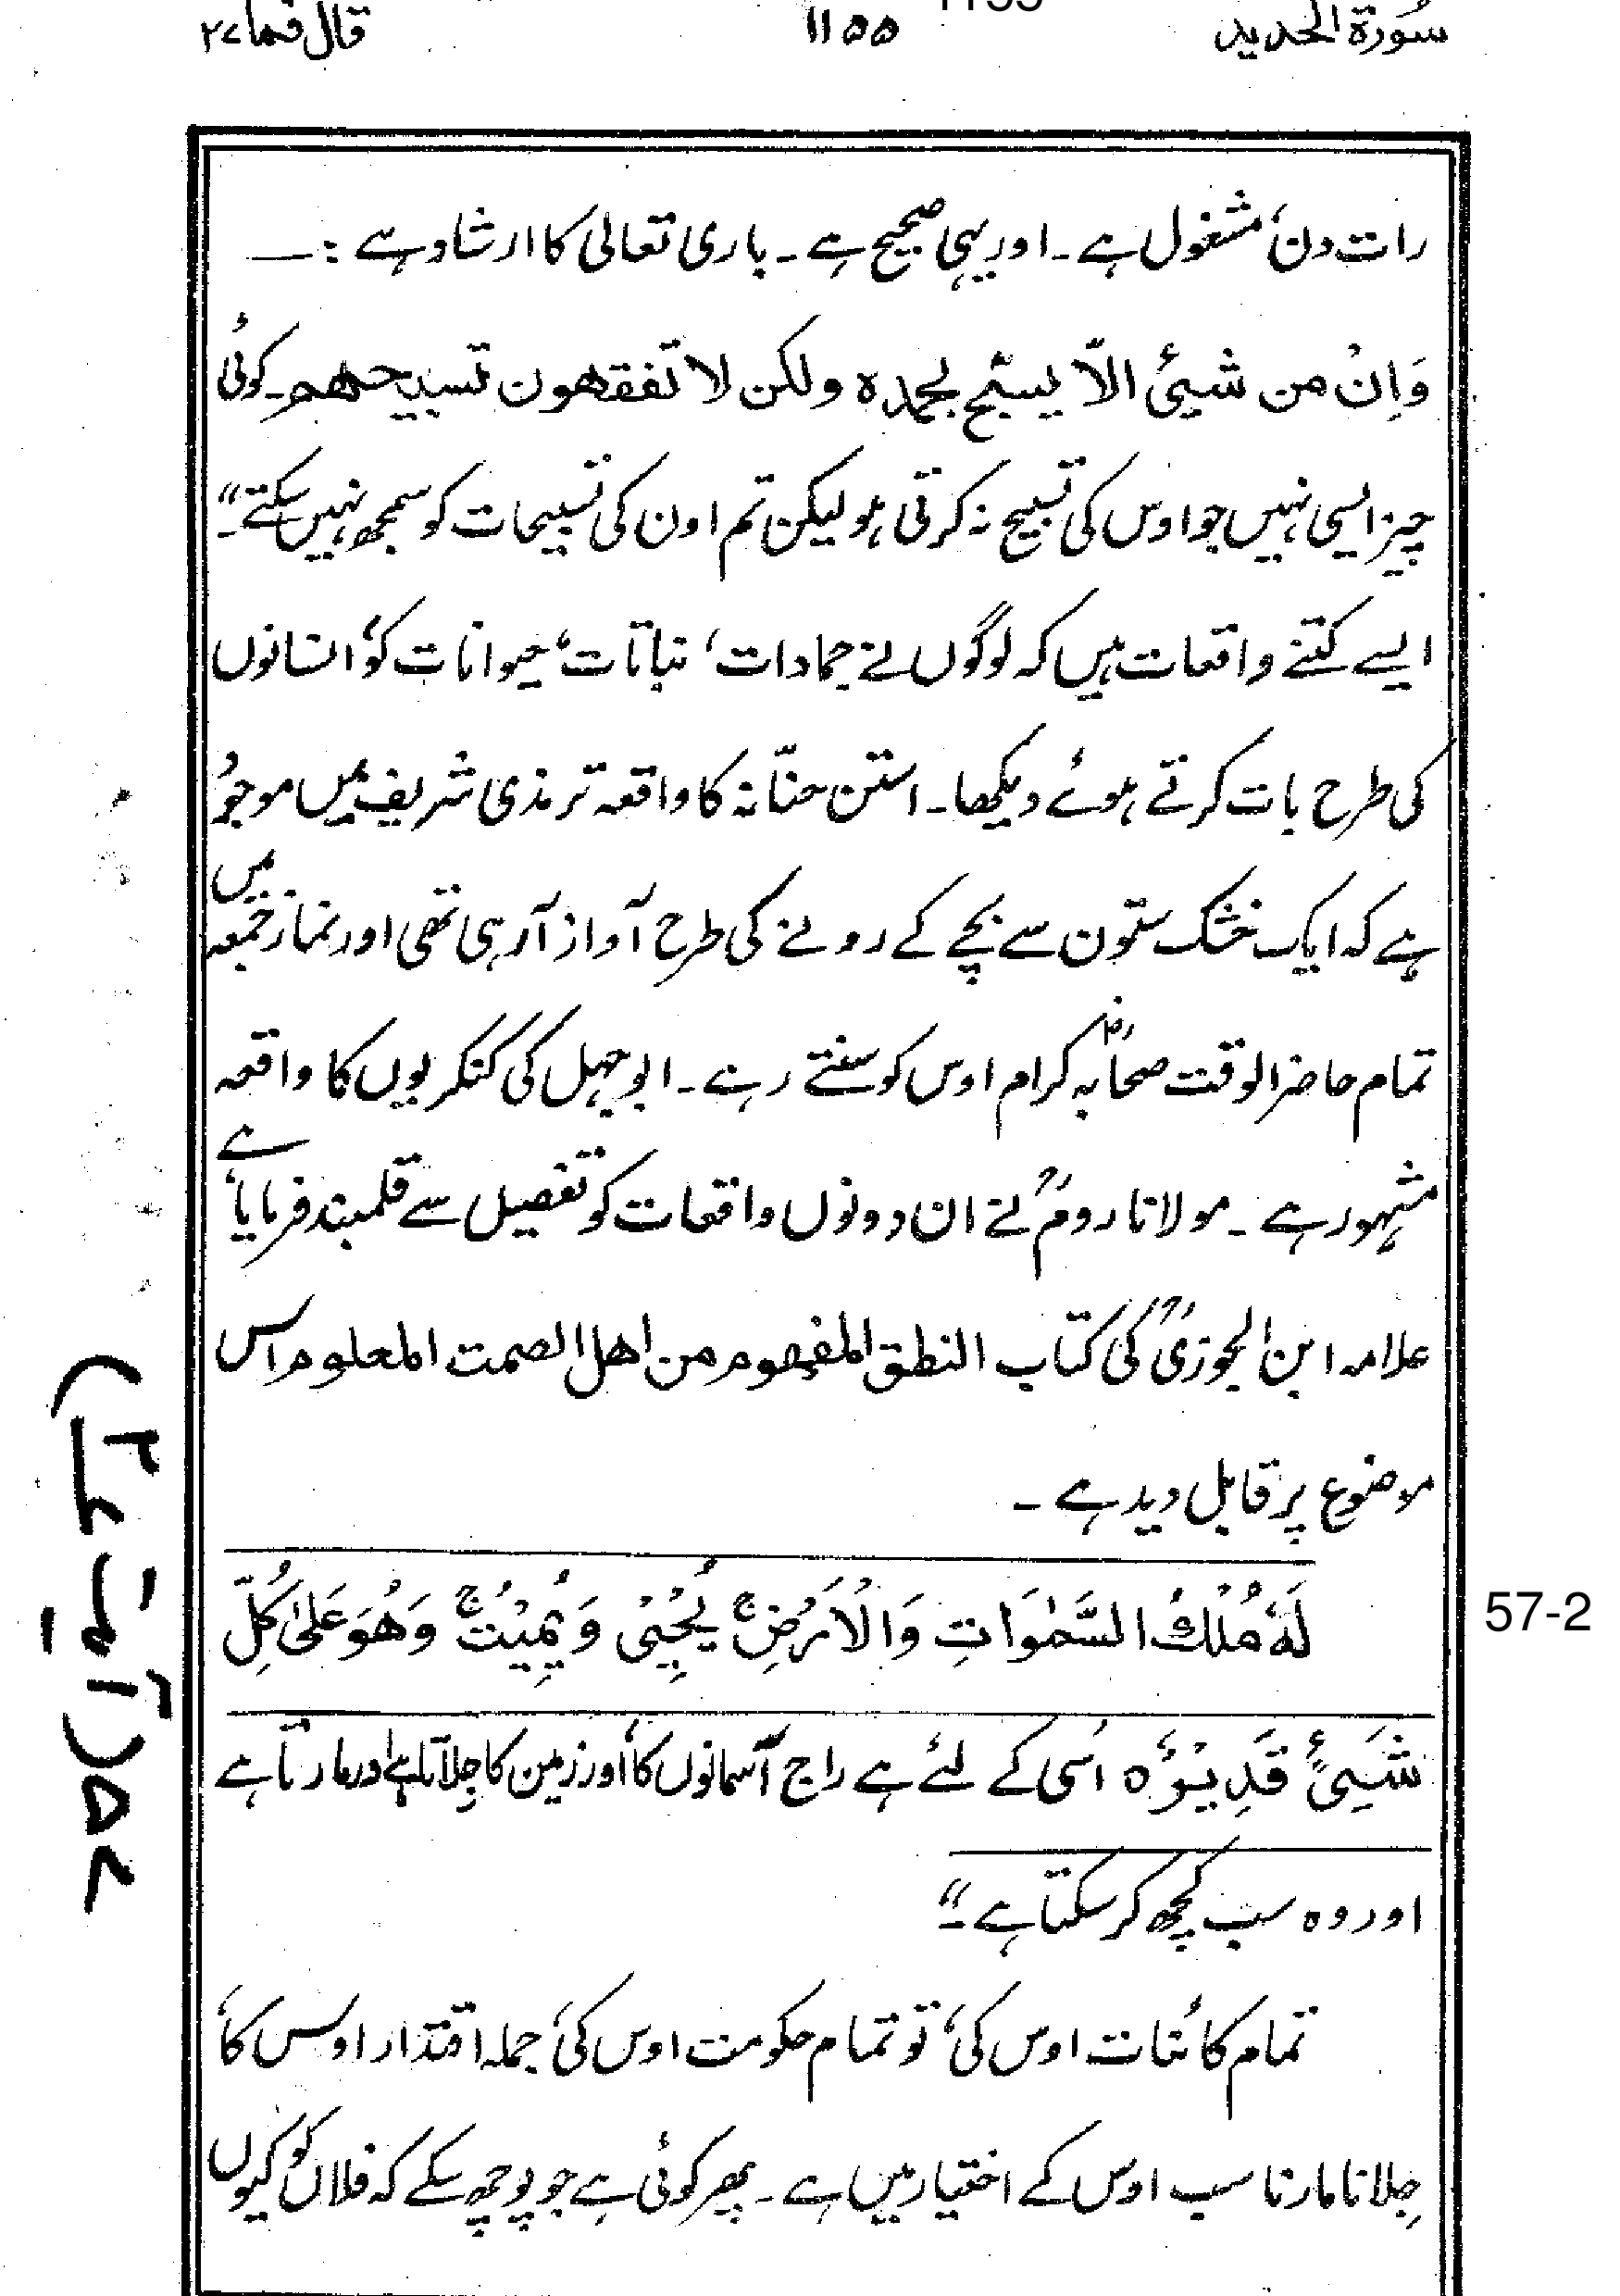 سُورۃ الحدید ۱۱۵۵ قال فما ۲۷
رات دن، مشغول ہے ۔ اور یہی صحیح ہے ۔ باری تعالیٰ کا ارشاد ہے :—
وَاِنْ من شیئ الّا یسبّح بحمدہ ولکن لا تفقھون تسبیحھم ۔ کوئی
چیز ایسی نہیں جو اوس کی تسبیح نہ کرتی ہو لیکن تم اون کی تسبیحات کو سمجھ نہیں سکتے ۔"
ایسے کتنے واقعات ہیں کہ لوگوں نے جمادات، نباتات، حیوانات کو، انسانوں
کی طرح بات کرتے ہوئے دیکھا ۔ استن حنّانہ کا واقعہ ترمذی شریف میں موجود
ہے کہ ایک خشک ستون سے بچے کے رونے کی طرح آواز آرہی تھی اور نماز جمعہ میں
تمام حاضر الوقت صحابہؓ کرام اوس کو سنتے رہے ۔ ابوجہل کی کنکریوں کا واقعہ
مشہور ہے ۔ مولانا رومؒ نے ان دونوں واقعات کو تفصیل سے قلمبند فرمایا، ہے
علامہ ابن الجوزیؒ کی کتاب النطق المفہوم من اھل الصمت المعلوم اس
موضوع پر قابل دید ہے ۔
لَہٗ مُلْکُ السَّمٰوَاتِ وَالْاَرْضِ ۚ یُحْیٖی وَیُمِیْتُ ۚ وَھُوَ عَلیٰ کُلِّ
57-2
شَیئٍ قَدِیْرٌ ہ اُسی کے لئے ہے راج آسمانوں کا، اور زمین کا جِلاتا ہے اور مارتا ہے
اور وہ سب کچھ کر سکتا ہے ۔"
تمام کائنات اوس کی، تو تمام حکومت اوس کی، جملہ اقتدار اوس کا،
جِلانا مارنا سب اوس کے اختیار میں ہے ۔ پھر کوئی ہے جو پوچھ سکے کہ فلاں کو کیوں
۵۷ (آیت ۲)